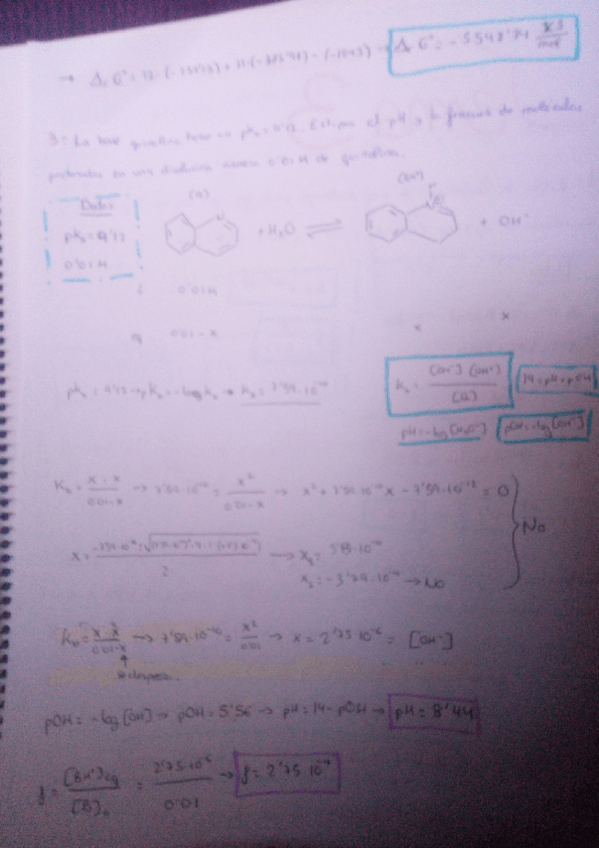 → Δr G° = 12 · (-) + 11 · (-) - (-) → Δr G° = -5548'74 KJ/mol
3- La base quinolina tiene un pKb = 9'12. Estima el pH y la fracción de moléculas
protonadas en una disolución acuosa 0'01 M de quinolina.
Datos
pKb = 9'12
0'01 M
(Q)
+ H2O ⇌
+ OH-
i 0'01 M
eq 0'01 - x x x
pKb = 9'12 → pKb = -log Kb → Kb = 7'59 · 10^-10
Kb = [QH+] [OH-] / [Q]
14 = pH + pOH
pH = -log [H3O+]
pOH = -log [OH-]
Kb = x · x / 0'01 - x → 7'59 · 10^-10 = x² / 0'01 - x → x² + 7'59 · 10^-10 x - 7'59 · 10^-12 = 0
No
x = / 2 → x1 =
x2 = → No
Kb = x · x / 0'01 - x → 7'59 · 10^-10 = x² / 0'01 → x = 2'75 · 10^-6 = [OH-]
se desprecia.
pOH = -log [OH] → pOH = 5'56 → pH = 14 - pOH → pH = 8'44
f = [BH+]eq / [B]0 = 2'75 · 10^-6 / 0'01 → f = 2'75 · 10^-4